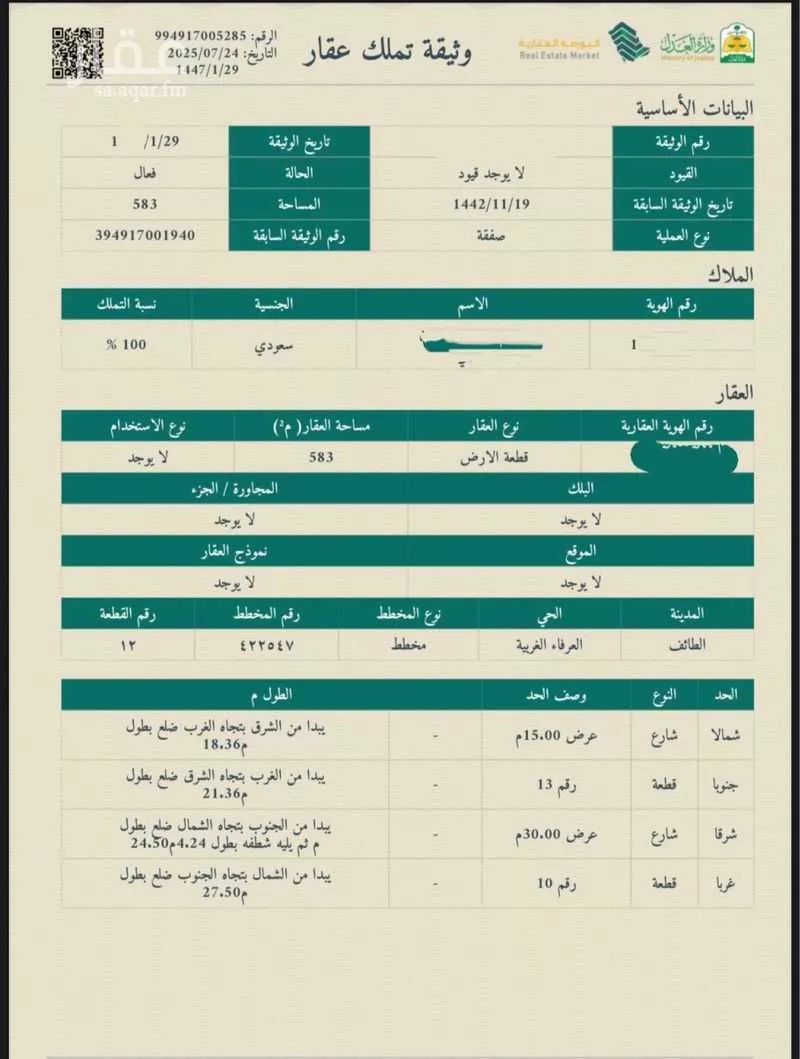 وزارة العدل
Ministry of Justice
البورصة العقارية
Real Estate Market
وثيقة تملك عقار
الرقم: 994917005285
التاريخ: 2025/07/24
1447/1/29
عقار
sa.aqar.fm
البيانات الأساسية
رقم الوثيقة تاريخ الوثيقة 1/29/ 1
القيود لا يوجد قيود الحالة فعال
تاريخ الوثيقة السابقة 1442/11/19 المساحة 583
نوع العملية صفقة رقم الوثيقة السابقة 394917001940
الملاك
رقم الهوية الاسم الجنسية نسبة التملك
1 سعودي 100 %
العقار
رقم الهوية العقارية نوع العقار مساحة العقار( م²) نوع الاستخدام
قطعة الارض 583 لا يوجد
البلك المجاورة / الجزء
لا يوجد لا يوجد
الموقع نموذج العقار
لا يوجد لا يوجد
المدينة الحي نوع المخطط رقم المخطط رقم القطعة
الطائف العرفاء الغربية مخطط ٤٢٢٥٤٧ ١٢
الحد النوع وصف الحد الطول م
شمالا شارع عرض 15.00م - يبدا من الشرق بتجاه الغرب ضلع بطول
18.36م
جنوبا قطعة رقم 13 - يبدا من الغرب بتجاه الشرق ضلع بطول
21.36م
شرقا شارع عرض 30.00م - يبدا من الجنوب بتجاه الشمال ضلع بطول
24.50م ثم يليه شطفه بطول 4.24م
غربا قطعة رقم 10 - يبدا من الشمال بتجاه الجنوب ضلع بطول
27.50م